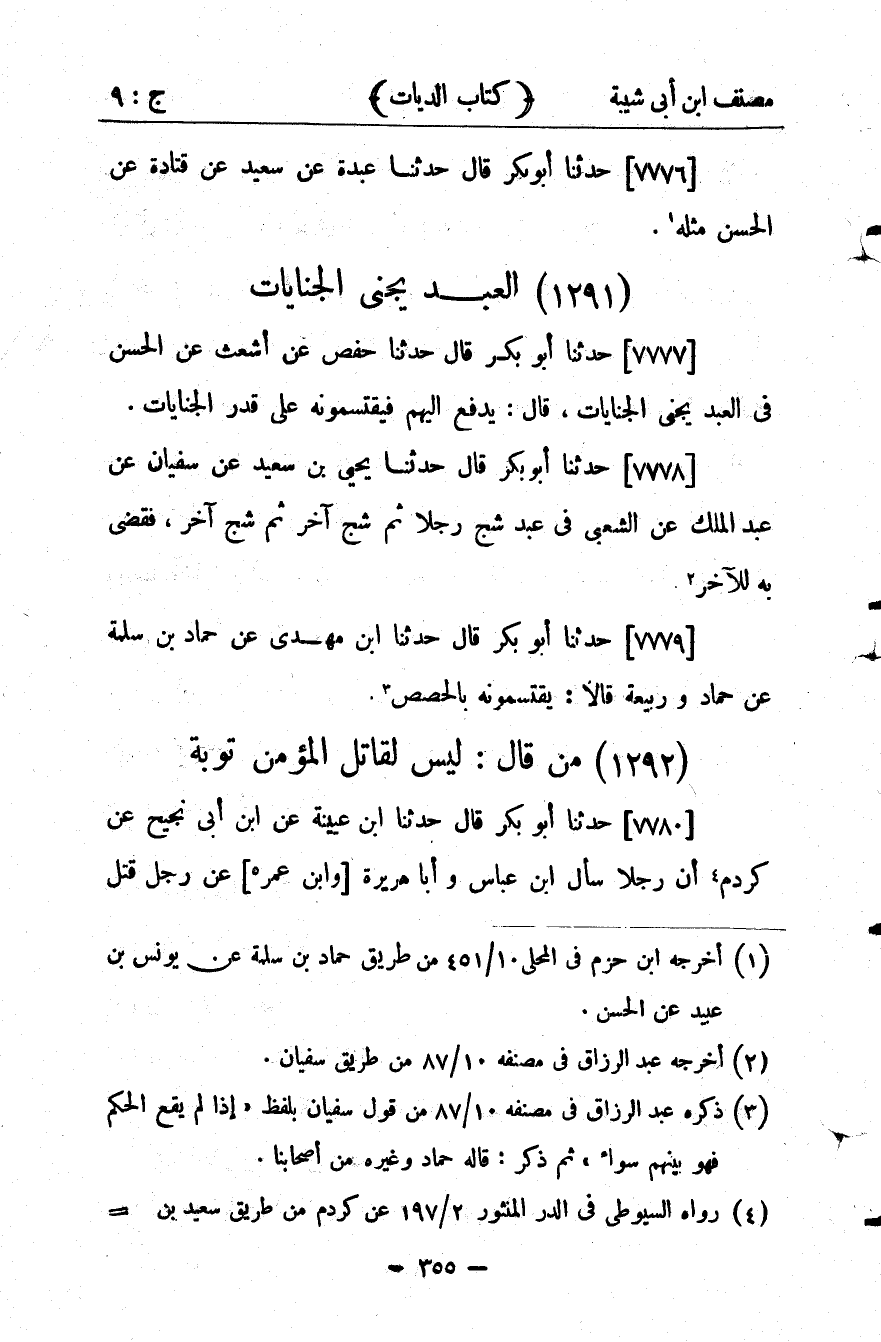 مصنف ابن أبى شيبة ﴿كتاب الديات﴾ ج : ٩
[٧٧٧٦] حدثنا أبوبكر قال حدثنا عبدة عن سعيد عن قتادة عن
الحسن مثله١ .
(١٢٩١) العبد يجنى الجنايات
[٧٧٧٧] حدثنا أبو بكر قال حدثنا حفص عن أشعث عن الحسن
فى العبد يجنى الجنايات ، قال : يدفع اليهم فيقتسمونه على قدر الجنايات .
[٧٧٧٨] حدثنا أبوبكر قال حدثنا يحيى بن سعيد عن سفيان عن
عبد الملك عن الشعبى فى عبد شج رجلا ثم شج آخر ثم شج آخر ، فقضى
به للآخر٢ .
[٧٧٧٩] حدثنا أبو بكر قال حدثنا ابن مهدى عن حماد بن سلمة
عن حماد و ربيعة قالا : يقتسمونه بالحصص٣ .
(١٢٩٢) من قال : ليس لقاتل المؤمن توبة
[٧٧٨٠] حدثنا أبو بكر قال حدثنا ابن عيينة عن ابن أبى نجيح عن
كردم٤ أن رجلا سأل ابن عباس و أبا هريرة [وابن عمر٥] عن رجل قتل
(١) أخرجه ابن حزم فى المحلى ٤٥١/١٠ من طريق حماد بن سلمة عن يونس بن
عبيد عن الحسن .
(٢) أخرجه عبد الرزاق فى مصنفه ٨٧/١٠ من طريق سفيان .
(٣) ذكره عبد الرزاق فى مصنفه ٨٧/١٠ من قول سفيان بلفظ « إذا لم يقع الحكم
فهو بينهم سواء ، ثم ذكر : قاله حماد وغيره من أصحابنا .
(٤) رواه السيوطى فى الدر المنثور ١٩٧/٢ عن كردم من طريق سعيد بن =
— ٣٥٥ —